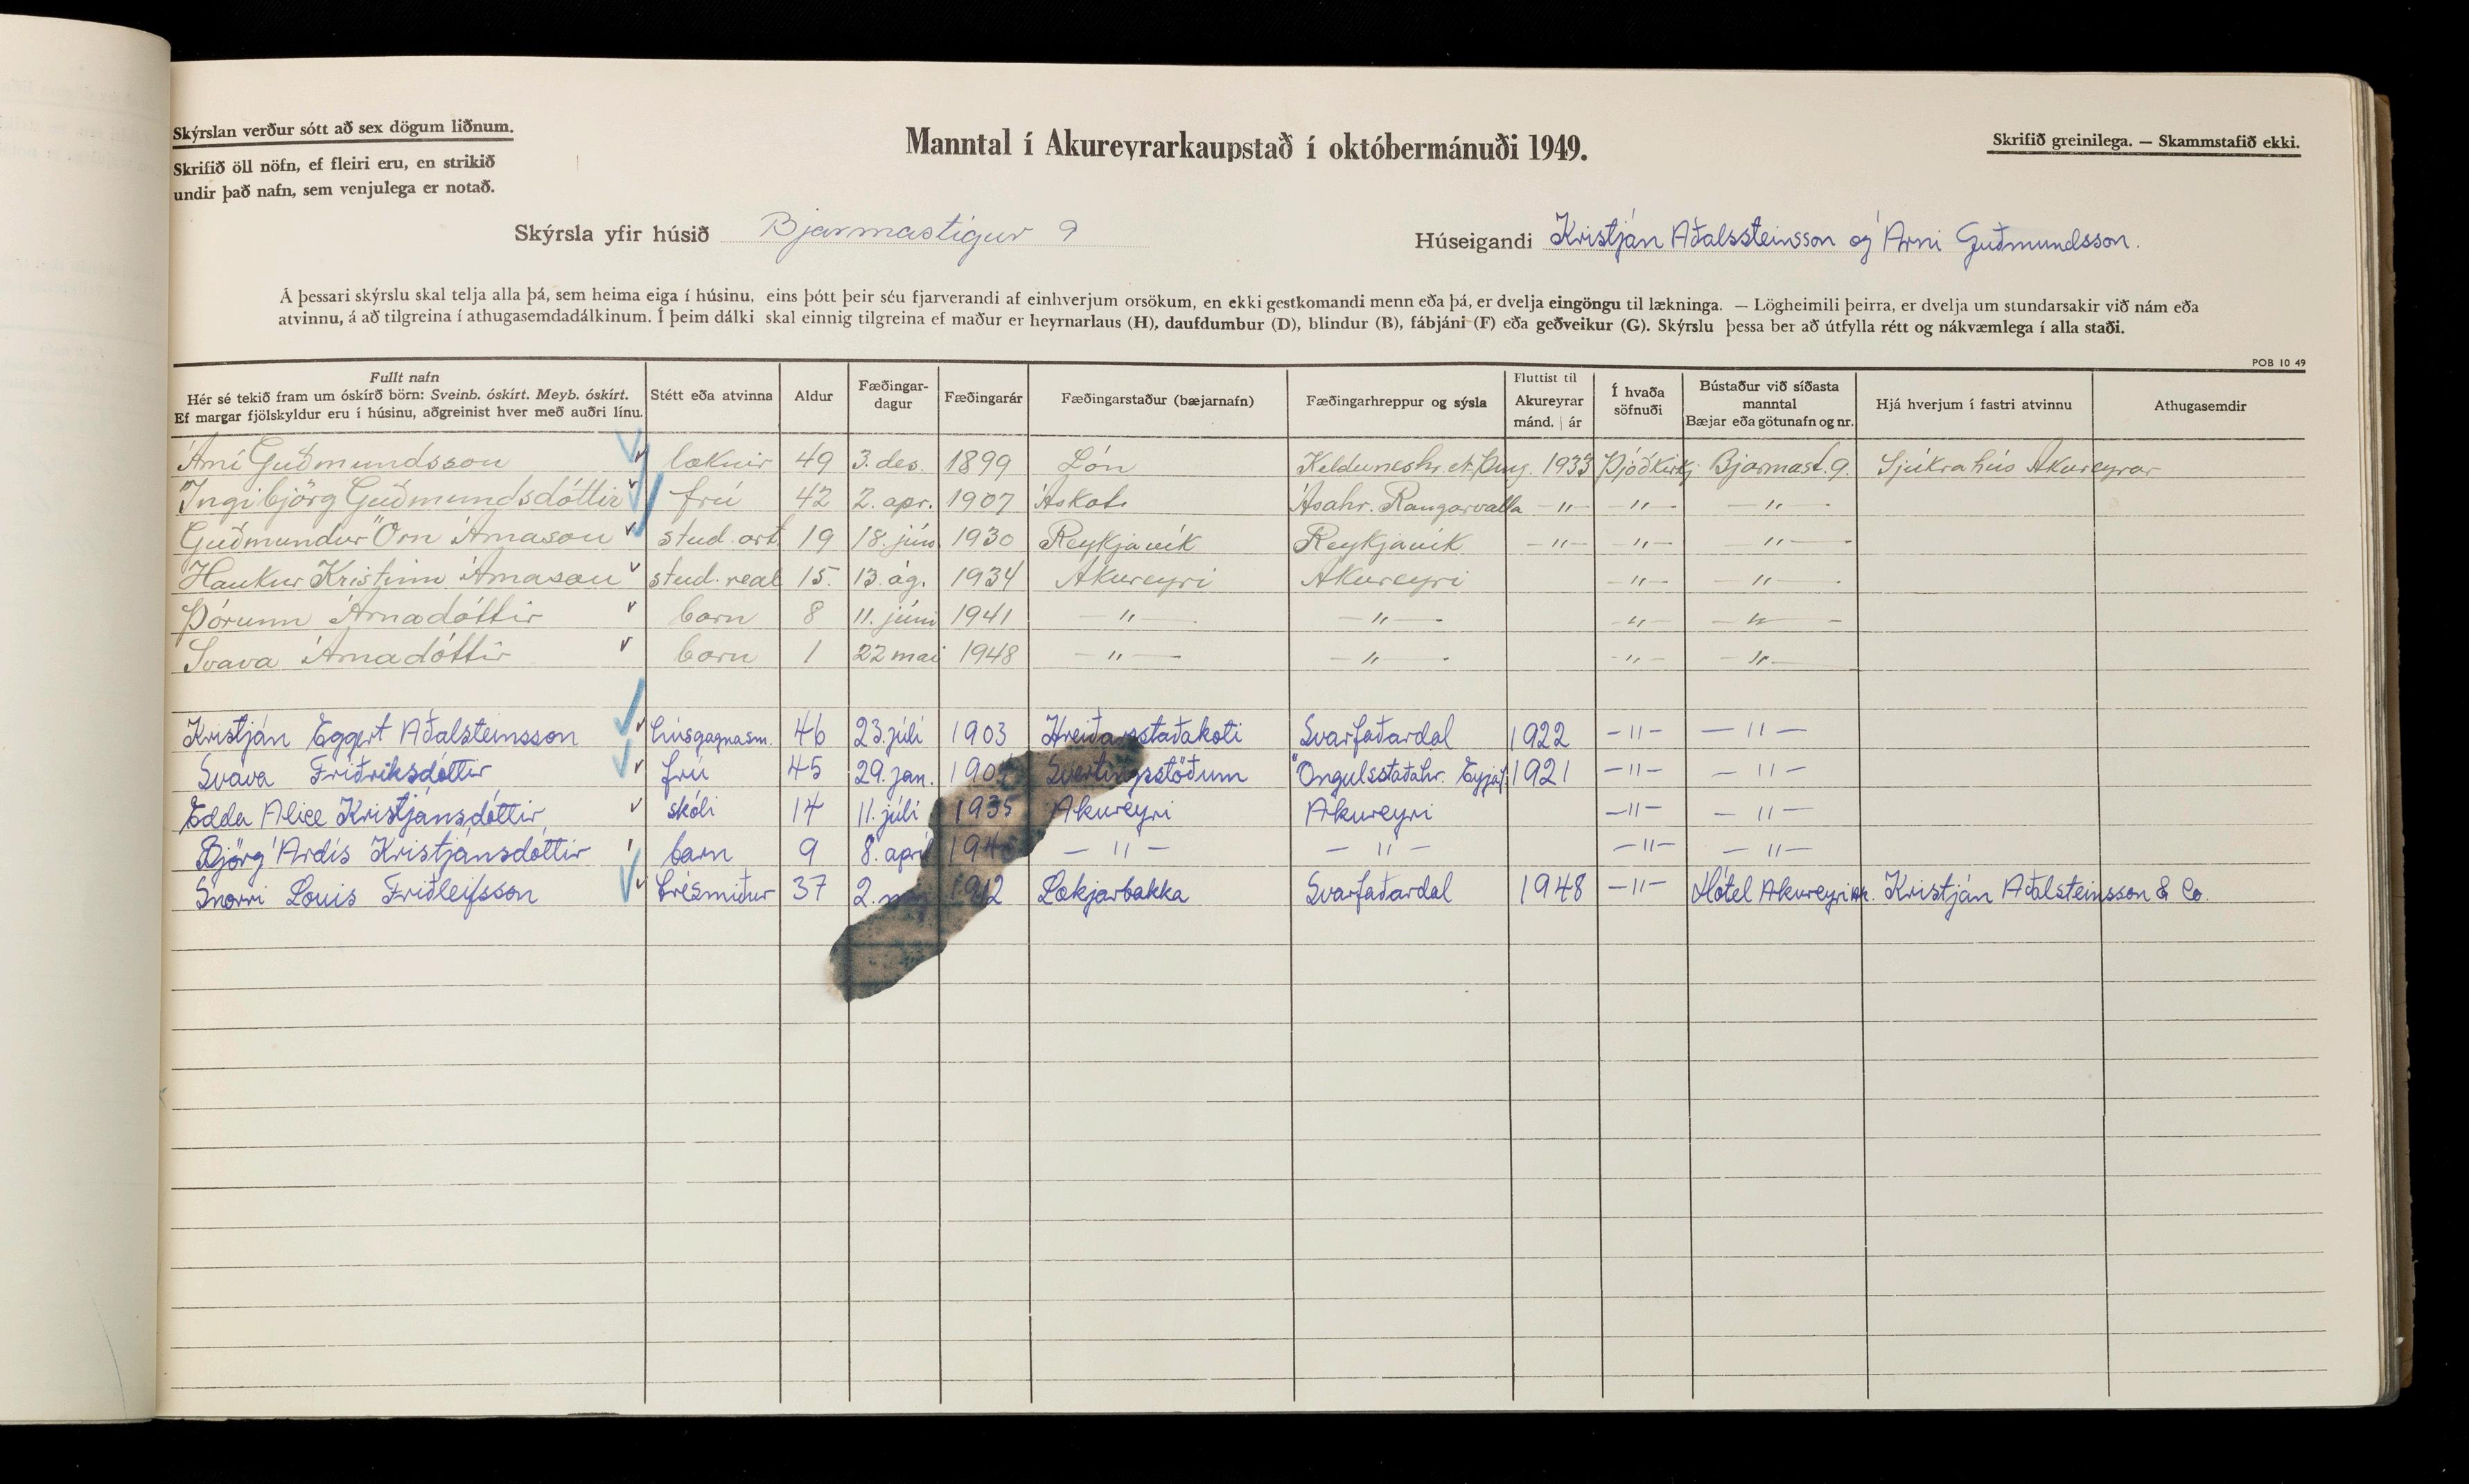 Skýrslan verður sótt að sex dögum liðnum.
Skrifið öll nöfn, ef fleiri eru, en strikið
undir það nafn, sem venjulega er notað.
Manntal í Akureyrarkaupstað í októbermánuði 1949.
Skrifið greinilega. — Skammstafið ekki.
Skýrsla yfir húsið Bjarmastígur 9
Húseigandi Kristján Aðalssteinsson og Árni Guðmundsson.
Á þessari skýrslu skal telja alla þá, sem heima eiga í húsinu, eins þótt þeir séu fjarverandi af einhverjum orsökum, en ekki gestkomandi menn eða þá, er dvelja eingöngu til lækninga. — Lögheimili þeirra, er dvelja um stundarsakir við nám eða
atvinnu, á að tilgreina í athugasemdadálkinum. Í þeim dálki skal einnig tilgreina ef maður er heyrnarlaus (H), daufdumbur (D), blindur (B), fábjáni (F) eða geðveikur (G). Skýrslu þessa ber að útfylla rétt og nákvæmlega í alla staði.
POB 10 49
Fullt nafn
Hér sé tekið fram um óskírð börn: Sveinb. óskírt. Meyb. óskírt.
Ef margar fjölskyldur eru í húsinu, aðgreinist hver með auðri línu.
Stétt eða atvinna
Aldur
Fæðingar-
dagur
Fæðingarár
Fæðingarstaður (bæjarnafn)
Fæðingarhreppur og sýsla
Fluttist til
Akureyrar
mánd. | ár
Í hvaða
söfnuði
Bústaður við síðasta
manntal
Bæjar eða götunafn og nr.
Hjá hverjum í fastri atvinnu
Athugasemdir
Árni Guðmundsson læknir 49 3. des. 1899 Lón Kelduneshr. N. Þing. 1933 Þjóðkirkj Bjarmast. 9. Sjúkrahús Akureyrar
Ingibjörg Guðmundsdóttir frú 42 2. apr. 1907 Áskot. Ásahr. Rangarvalla — " — — " — — " —
Guðmundur Örn Árnason stud. art. 19 18. jún 1930 Reykjavík Reykjavík — " — — " — — " —
Haukur Kristinn Árnason stud. real 15. 13. ág. 1934 Akureyri Akureyri — " — — " —
Þórunn Árnadóttir barn 8 11. júní 1941 — " — — " — — " — — " —
Svava Árnadóttir barn 1 22 mai 1948 — " — — " — — " — — " —
Kristján Eggert Aðalsteinsson húsgagnasm. 46 23. júlí 1903 Hreiðarsstaðakoti Svarfaðardal 1922 — " — — " —
Svava Friðriksdóttir frú 45 29. jan. Svertingsstöðum Öngulsstaðahr. Eyjaf. 1921 — " — — " —
Edda Alice Kristjánsdóttir skóli 14 11. júlí 1935 Akureyri Akureyri — " — — " —
Björg Árdís Kristjánsdóttir barn 9 8. apríl — " — — " — — " — — " —
Snorri Louis Friðleifsson trésmiður 37 2. 1912 Lækjarbakka Svarfaðardal 1948 — " — Hótel Akureyri Kristján Aðalsteinsson & Co.